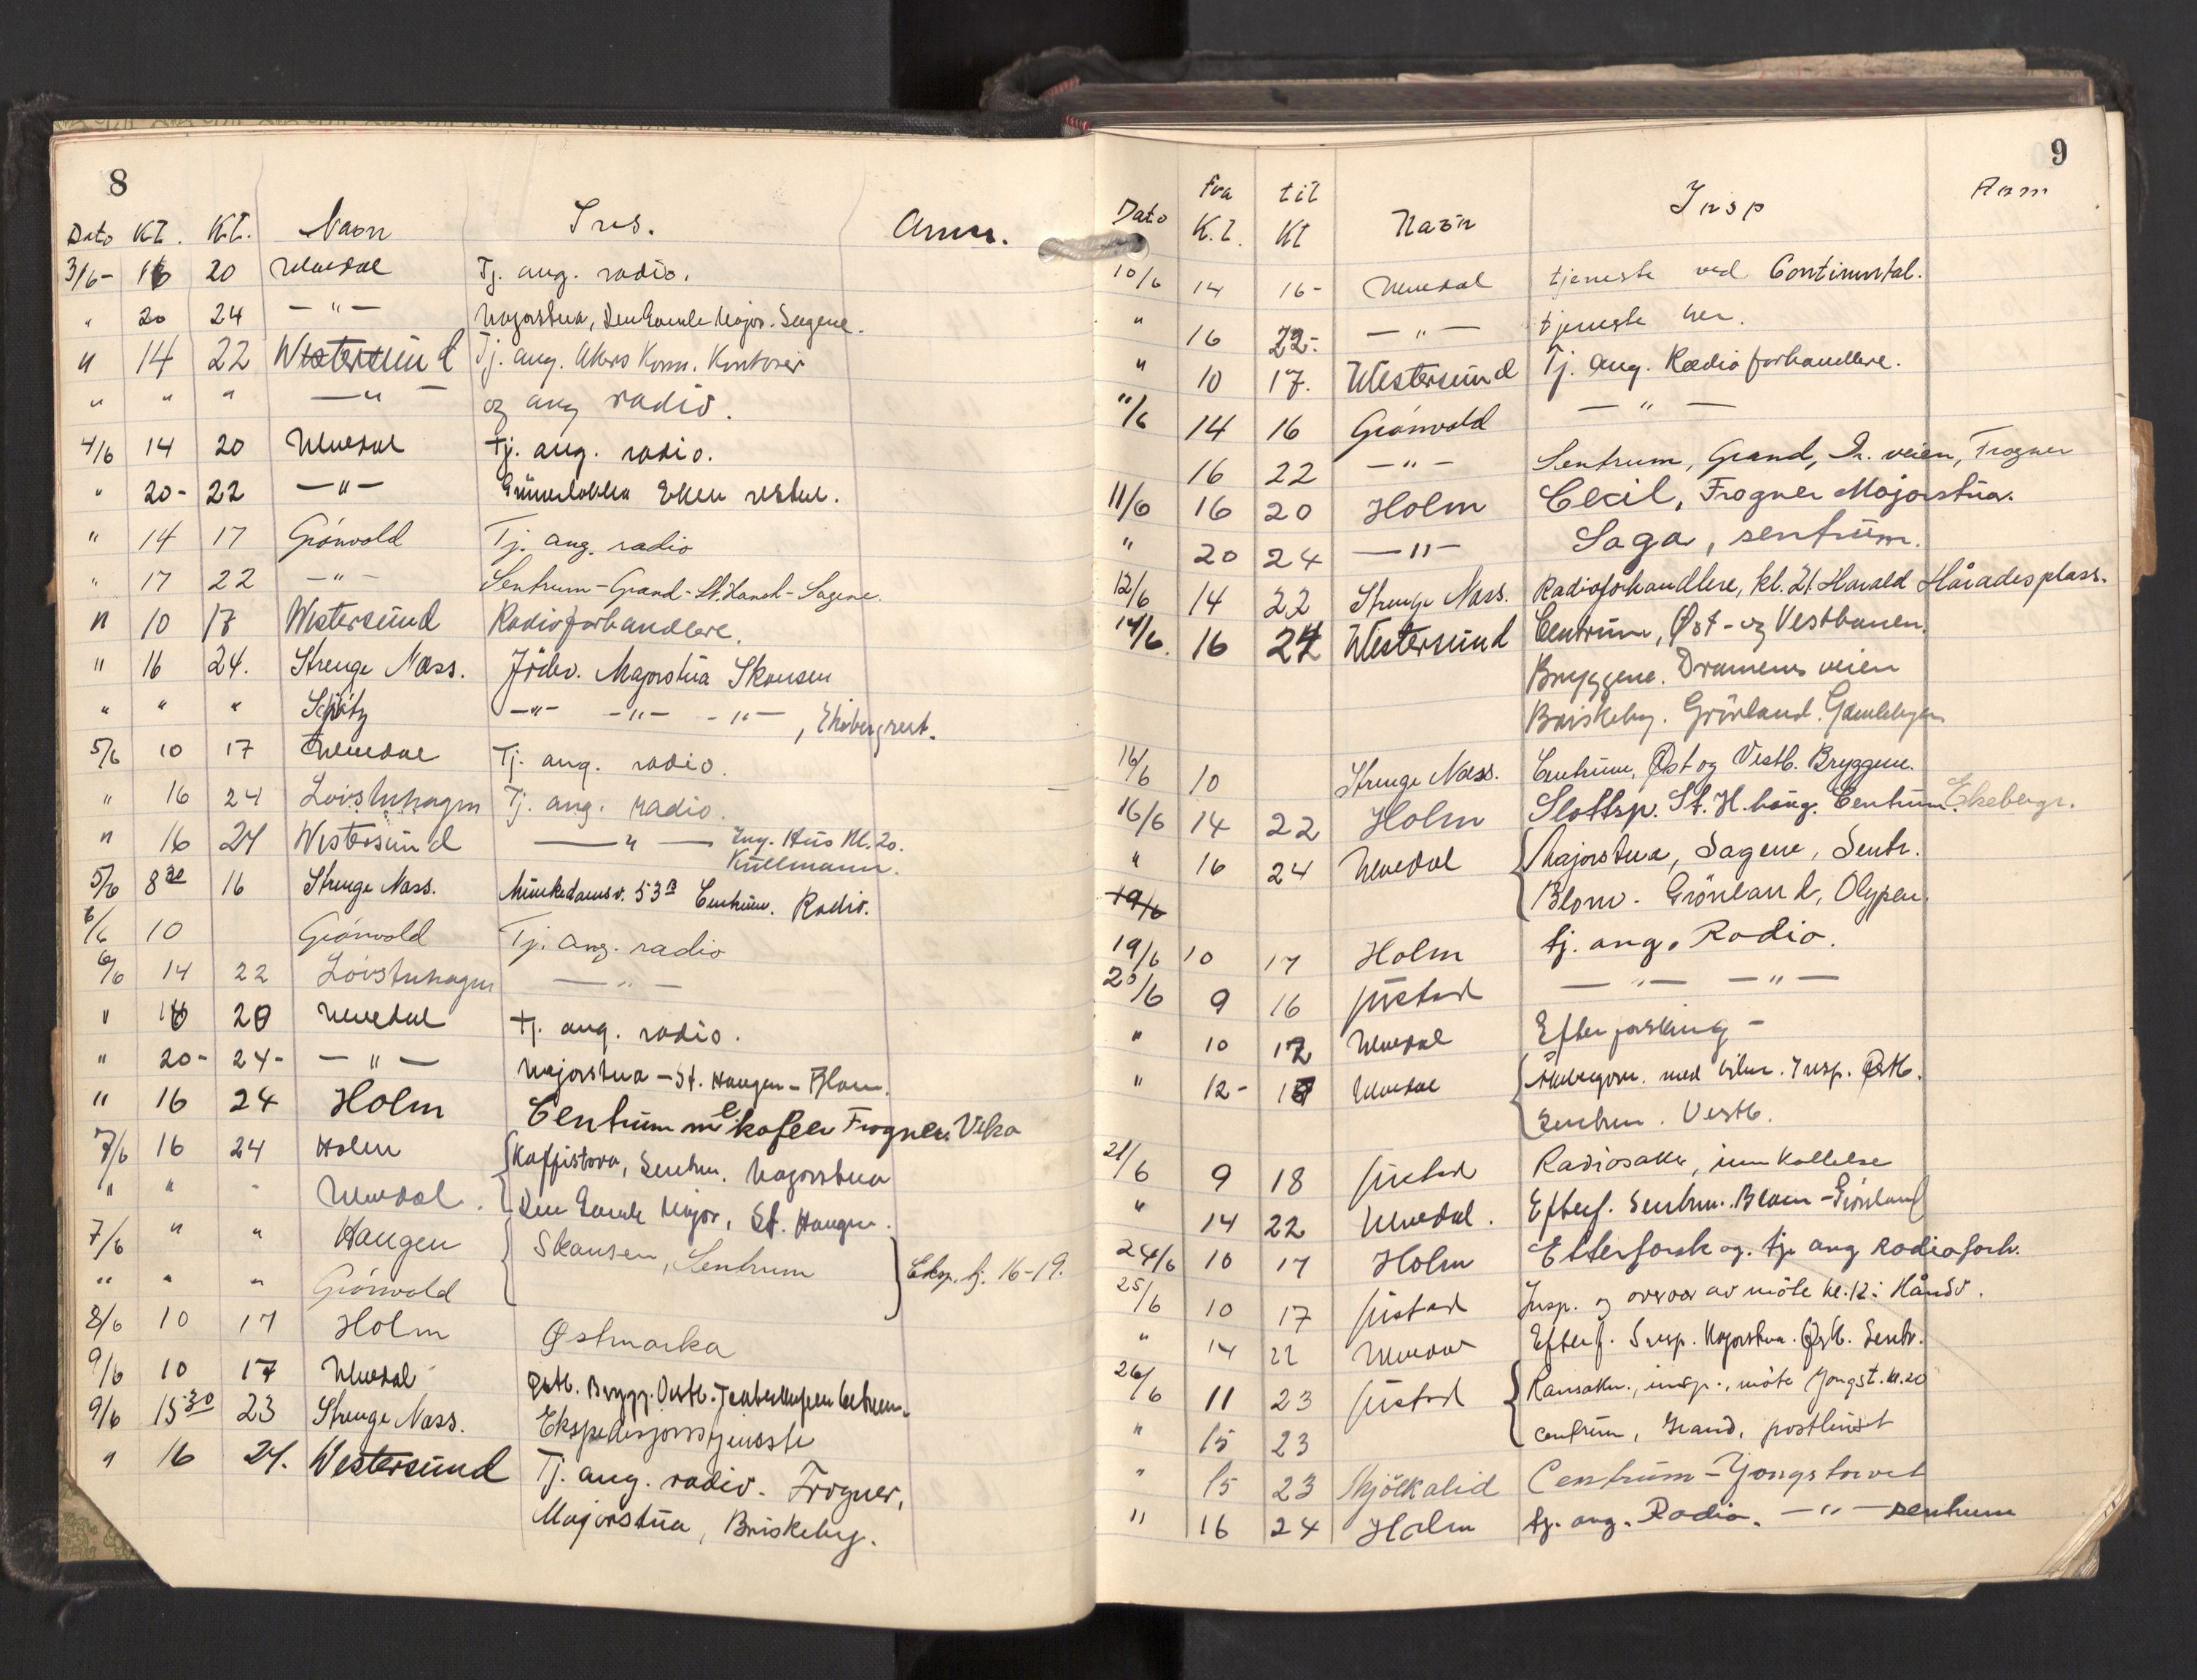 8
Dato Kl. Kl. Navn Ins. Anm.
3/6- 16 20 Ulvedal Tj. ang. radio.
" 20 24 —"— Majorstua, Den Gamle Major. Sagene.
" 14 22 Westersund Tj. ang. Akers Kom. Kontorer
" " " —"— og ang radio.
4/6 14 20 Ulvedal tj. ang. radio.
" 20- 22 —"— Grünerløkka Eken
" 14 17 Grönvold Tj. ang. radio
" 17 22 —"— Sentrum - Grand - St. Hansh - Sagene.
" 10 17 Westersund Radioforhandlere.
" 16 24. Strenge Næss. Majorstua Skansen
" " " —"— —"— —"—, Ekeberg rest.
5/6 10 17 Ulvedal Tj. ang. radio.
" 16 24 Lövstuhagen Tj. ang. radio.
" 16 24 Westersund —"— Ing. Hus Kl. 20.
Kullmann.
5/6 8 30 16 Strenge Næss. Munkedamsv. 53 B Centrum. Radio.
6/6 10 Grönvold Tj. ang. radio
6/6 14 22 Lövstuhagen —"—
" 20 Ulvedal tj. ang. radio.
" 20- 24- —"— Majorstua - St. Haugen - Blom.
" 16 24 Holm Centrum Frogner. Vika
7/6 16 24 Holm Kaffistova, Sentrum. Majorstua
" " " Ulvedal. Den Gamle Major, St. Haugen.
7/6 " " Haugen Skansen, Sentrum
" " " Grönvold Eksp. tj. 16-19.
8/6 10 17 Holm Østmarka
9/6 10 17 Ulvedal Østb. Brygg.
9/6 15 30 23 Strenge Næss. Ekspedisjonstjeneste
" 16 24. Westersund Tj. ang. radio. Frogner,
Majorstua, Briskeby.
9
Fra til
Dato K.l. Kl Navn Insp Anm
10/6 14 16- Ulvedal tjeneste ved Continental.
" 16 22- —"— tjeneste her.
" 10 17. Westersund Tj. ang. Radioforhandlere.
11/6 14 16 Grönvold —"—
16 22 —"— Sentrum, Grand, Dr. veien, Frogner
11/6 16 20 Holm Cecil, Frogner Majorstua.
" 20 24 —"— Saga, sentrum.
12/6 14 22 Strenge Næss. Radioforhandlere, kl. 21. Harald Hårades plass.
14/6. 16 24 Westersund Centrum, Øst- og Vestbanen.
Bryggene. Dramens veien
Briskeby. Grönland. Gamlebyen
16/6 10 Strenge Næss. Centrum, Øst og Vestb. Bryggene.
16/6 14 22 Holm Slottsp. St. H. haug. Centrum. Ekebergr.
" 16 24 Ulvedal Majorstua, Sagene, Sentr.
19/6 Blom - Grönland, Olypen.
19/6 10 17 Holm tj. ang. Radio.
20/6 9 16 Justad —"— —"—
" 10 12 Ulvedal Efterforskning -
" 12- Ulvedal Insp. Østb.
Sentrum. Vestb.
21/6 9 18 Justad Radiosaker, innkallelse
" 14 22 Ulvedal. Efterf. Sentrum. Blom - Grönland
24/6 10 17 Holm Etterforsk og. tje ang Radioforh.
25/6 10 17 Justad Insp. og overvær av möte kl. 12: Håndv.
" 14 22 Ulvedal Efterf. Insp. Majorstua. Østb. Sentr.
26/6 11 23 Justad Ransakn., insp., möte Yongst. kl. 20
" 15 23 centrum, Grand, posthuset
" 15 23 Centrum - Yongstorvet
" 16 24 Holm tj. ang. Radio. —"— sentrum